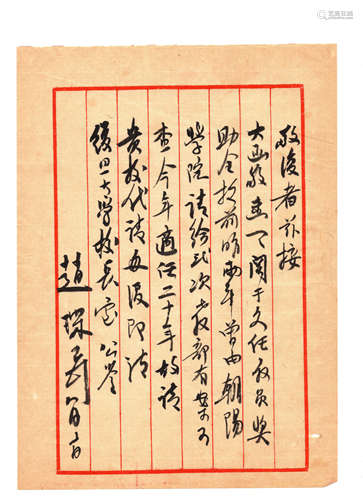 敬復者茲接
大函敬悉一一關于久任教員獎
助金於前昨兩年曾由朝陽
學院請給貳次教部有案可
查今年適任二十年故請
貴校代請毋誤即請
復旦大學校長室公鑒
趙琛